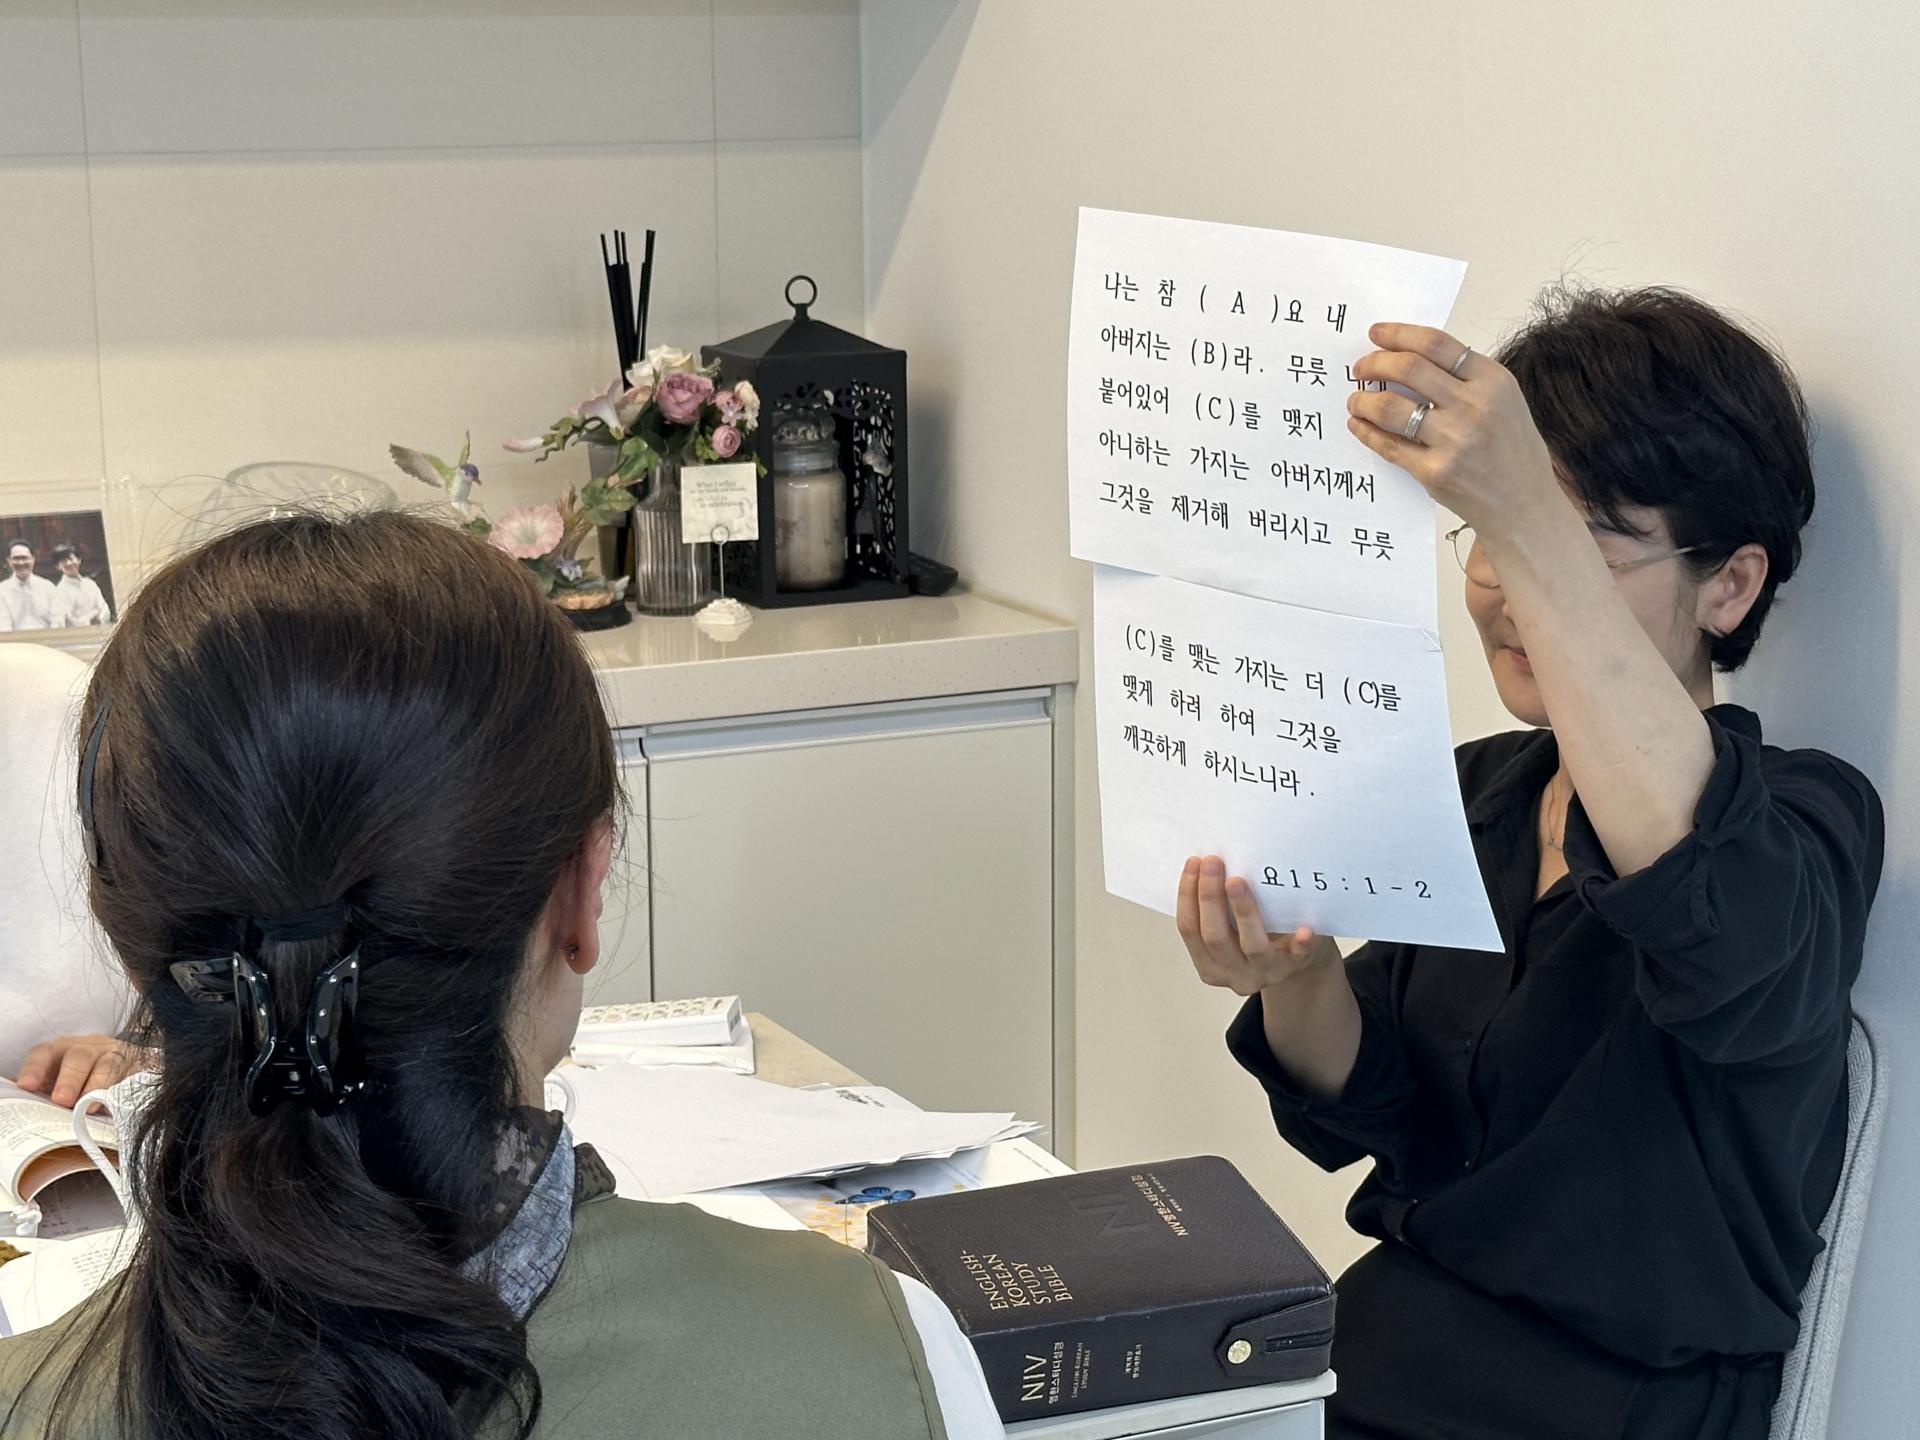 나는 참 ( A )요 내
아버지는 (B)라. 무릇 내게
붙어있어 (C)를 맺지
아니하는 가지는 아버지께서
그것을 제거해 버리시고 무릇
(C)를 맺는 가지는 더 (C)를
맺게 하려 하여 그것을
깨끗하게 하시느니라.
요15:1-2
When I reflect
NIV영한스터디성경
ENGLISH-
KOREAN
STUDY
BIBLE
NIV
영한스터디성경
ENGLISH-KOREAN
STUDY BIBLE